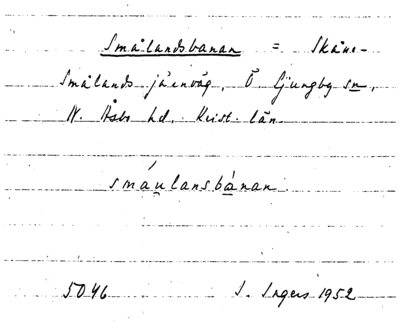 Smålandsbanan = Skåne-
Smålands järnväg, Ö Ljungby sn,
N. Åsbo hd. Krist. län.
smáulansbánan.
5046 I. Ingers 1952